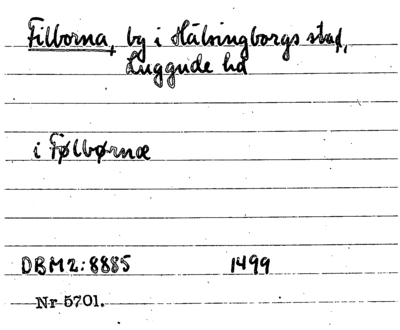 Filborna, by i Hälsingborgs stad,
Luggude hd
i Følbørnæ
DBM2:8885 1499
Nr 5701.